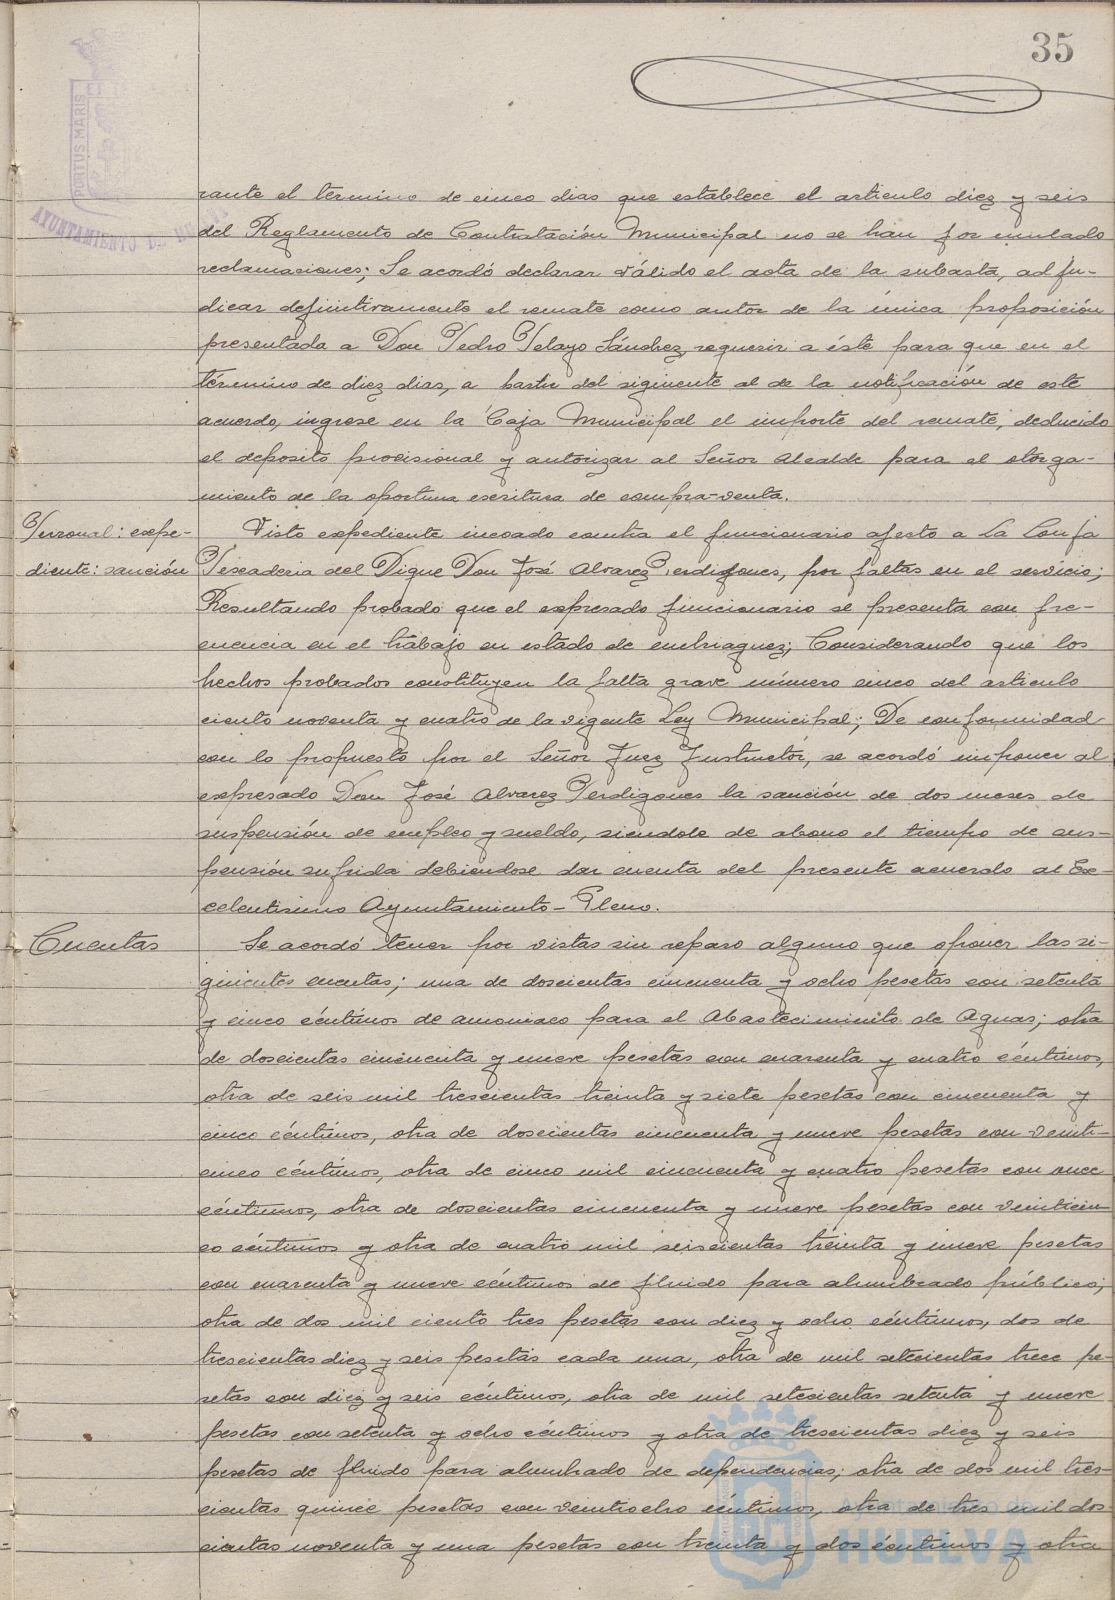 35
PORTUS MARIS
AYUNTAMIENTO DE HUELVA
rante el termino de cinco dias que establece el articulo diez y seis
del Reglamento de Contratación Municipal no se han formulado
reclamaciones; Se acordó declarar válido el acta de la subasta, adju-
dicar definitivamente el remate como autor de la única proposición
presentada a Don Pedro Pelayo Sánchez, requerir a éste para que en el
término de diez dias, a partir del siguiente al de la notificación de este
acuerdo, ingrese en la Caja Municipal el importe del remate, deducido
el deposito provisional y autorizar al Señor Alcalde para el otorga-
miento de la oportuna escritura de compra-venta.
Personal: expe-
diente: sanción
Visto expediente incoado contra el funcionario afecto a La Lonja
Pescaderia del Dique Don José Alvarez Perdigones, por faltas en el servicio;
Resultando probado que el expresado funcionario se presenta con fre-
cuencia en el trabajo en estado de embriaguez; Considerando que los
hechos probados constituyen la falta grave número cinco del articulo
ciento noventa y cuatro de la vigente Ley Municipal; De conformidad
con lo propuesto por el Señor Juez Instructor, se acordó imponer al
expresado Don José Alvarez Perdigones la sanción de dos meses de
suspensión de empleo y sueldo, siendole de abono el tiempo de sus-
pensión sufrida debiendose dar cuenta del presente acuerdo al Ex-
celentisimo Ayuntamiento-Pleno.
Cuentas
Se acordó tener por vistas sin reparo alguno que oponer las si-
guientes cuentas; una de doscientas cincuenta y ocho pesetas con setenta
y cinco céntimos de amoniaco para el Abastecimiento de Aguas; otra
de doscientas cincuenta y nueve pesetas con cuarenta y cuatro céntimos,
otra de seis mil trescientas treinta y siete pesetas con cincuenta y
cinco céntimos, otra de doscientas cincuenta y nueve pesetas con veinti-
cinco céntimos, otra de cinco mil cincuenta y cuatro pesetas con once
céntimos, otra de doscientas cincuenta y nueve pesetas con veinticin-
co céntimos y otra de cuatro mil seiscientas treinta y nueve pesetas
con cuarenta y nueve céntimos de fluido para alumbrado público;
otra de dos mil ciento tres pesetas con diez y ocho céntimos, dos de
trescientas diez y seis pesetas cada una, otra de mil setecientas trece pe-
setas con diez y seis céntimos, otra de mil setecientas setenta y nueve
pesetas con setenta y ocho céntimos y otra de trescientas diez y seis
pesetas de fluido para alumbrado de dependencias; otra de dos mil tres-
cientas quince pesetas con veintiocho céntimos, otra de tres mil dos-
cientas noventa y una pesetas con treinta y dos céntimos y otra
Ayuntamiento de
HUELVA